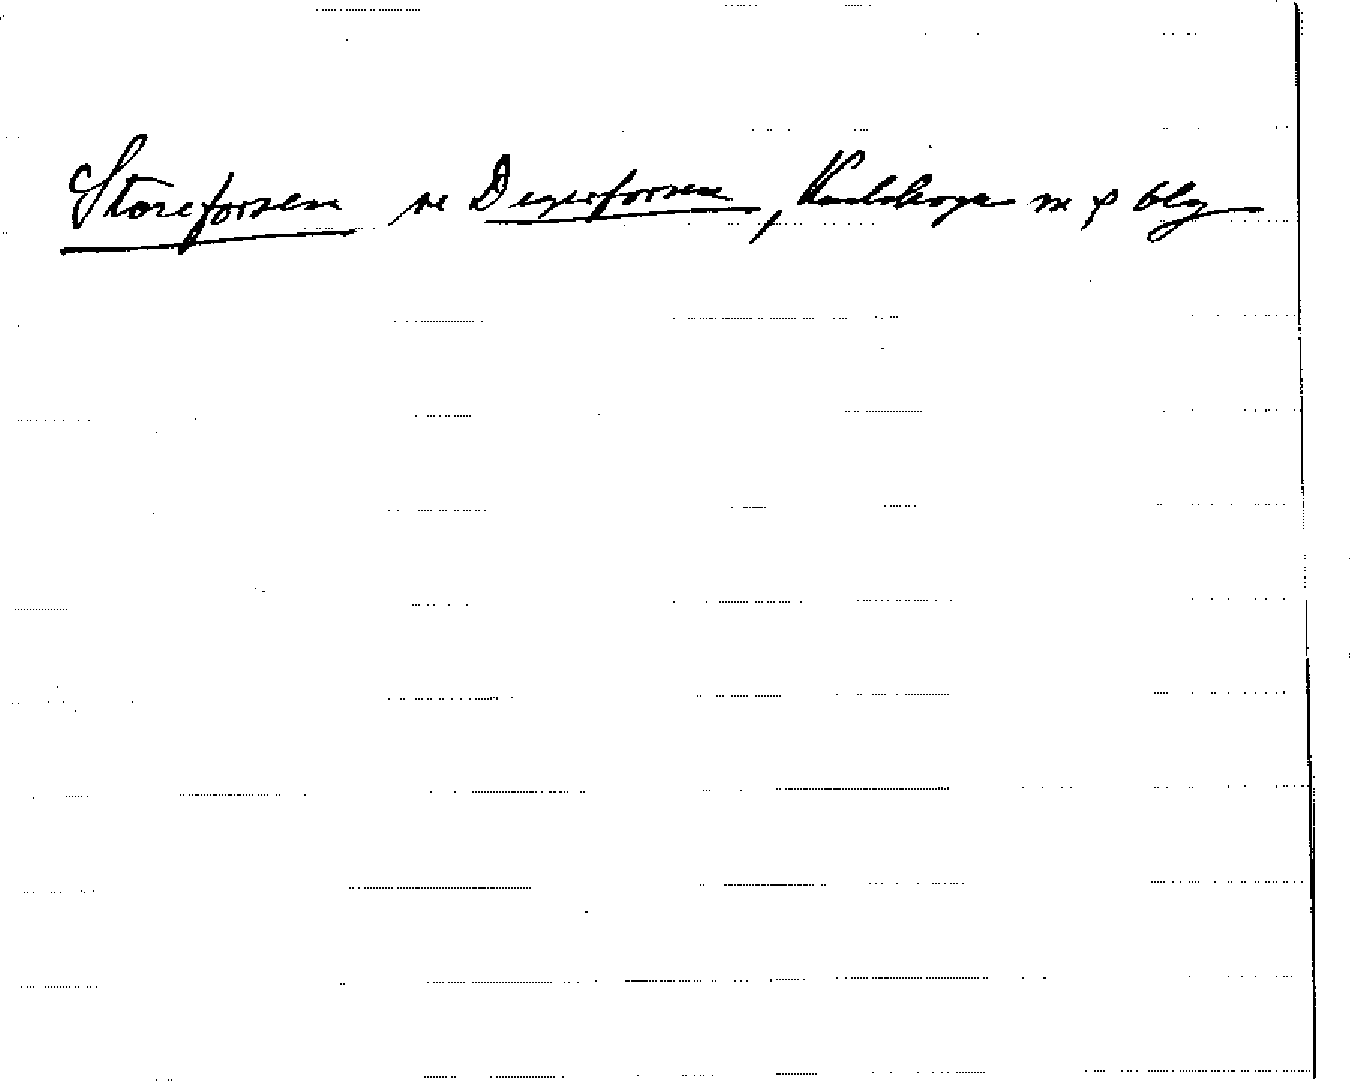 Storeforsen se Degerforsen, Karlskoga m fl blg